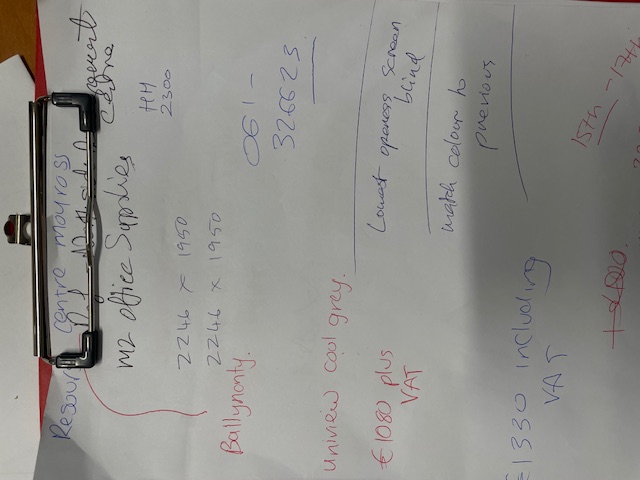 Resource centre moyross
M2 office Supplies
Centre
HH
2300
2246 x 1950
2246 x 1950
061-
326623.
Ballynanty.
uniview cool grey.
Lowest openess screen
blind
€1080 plus
VAT
match colour to
previous
€1330 including
VAT
15th - 17th.